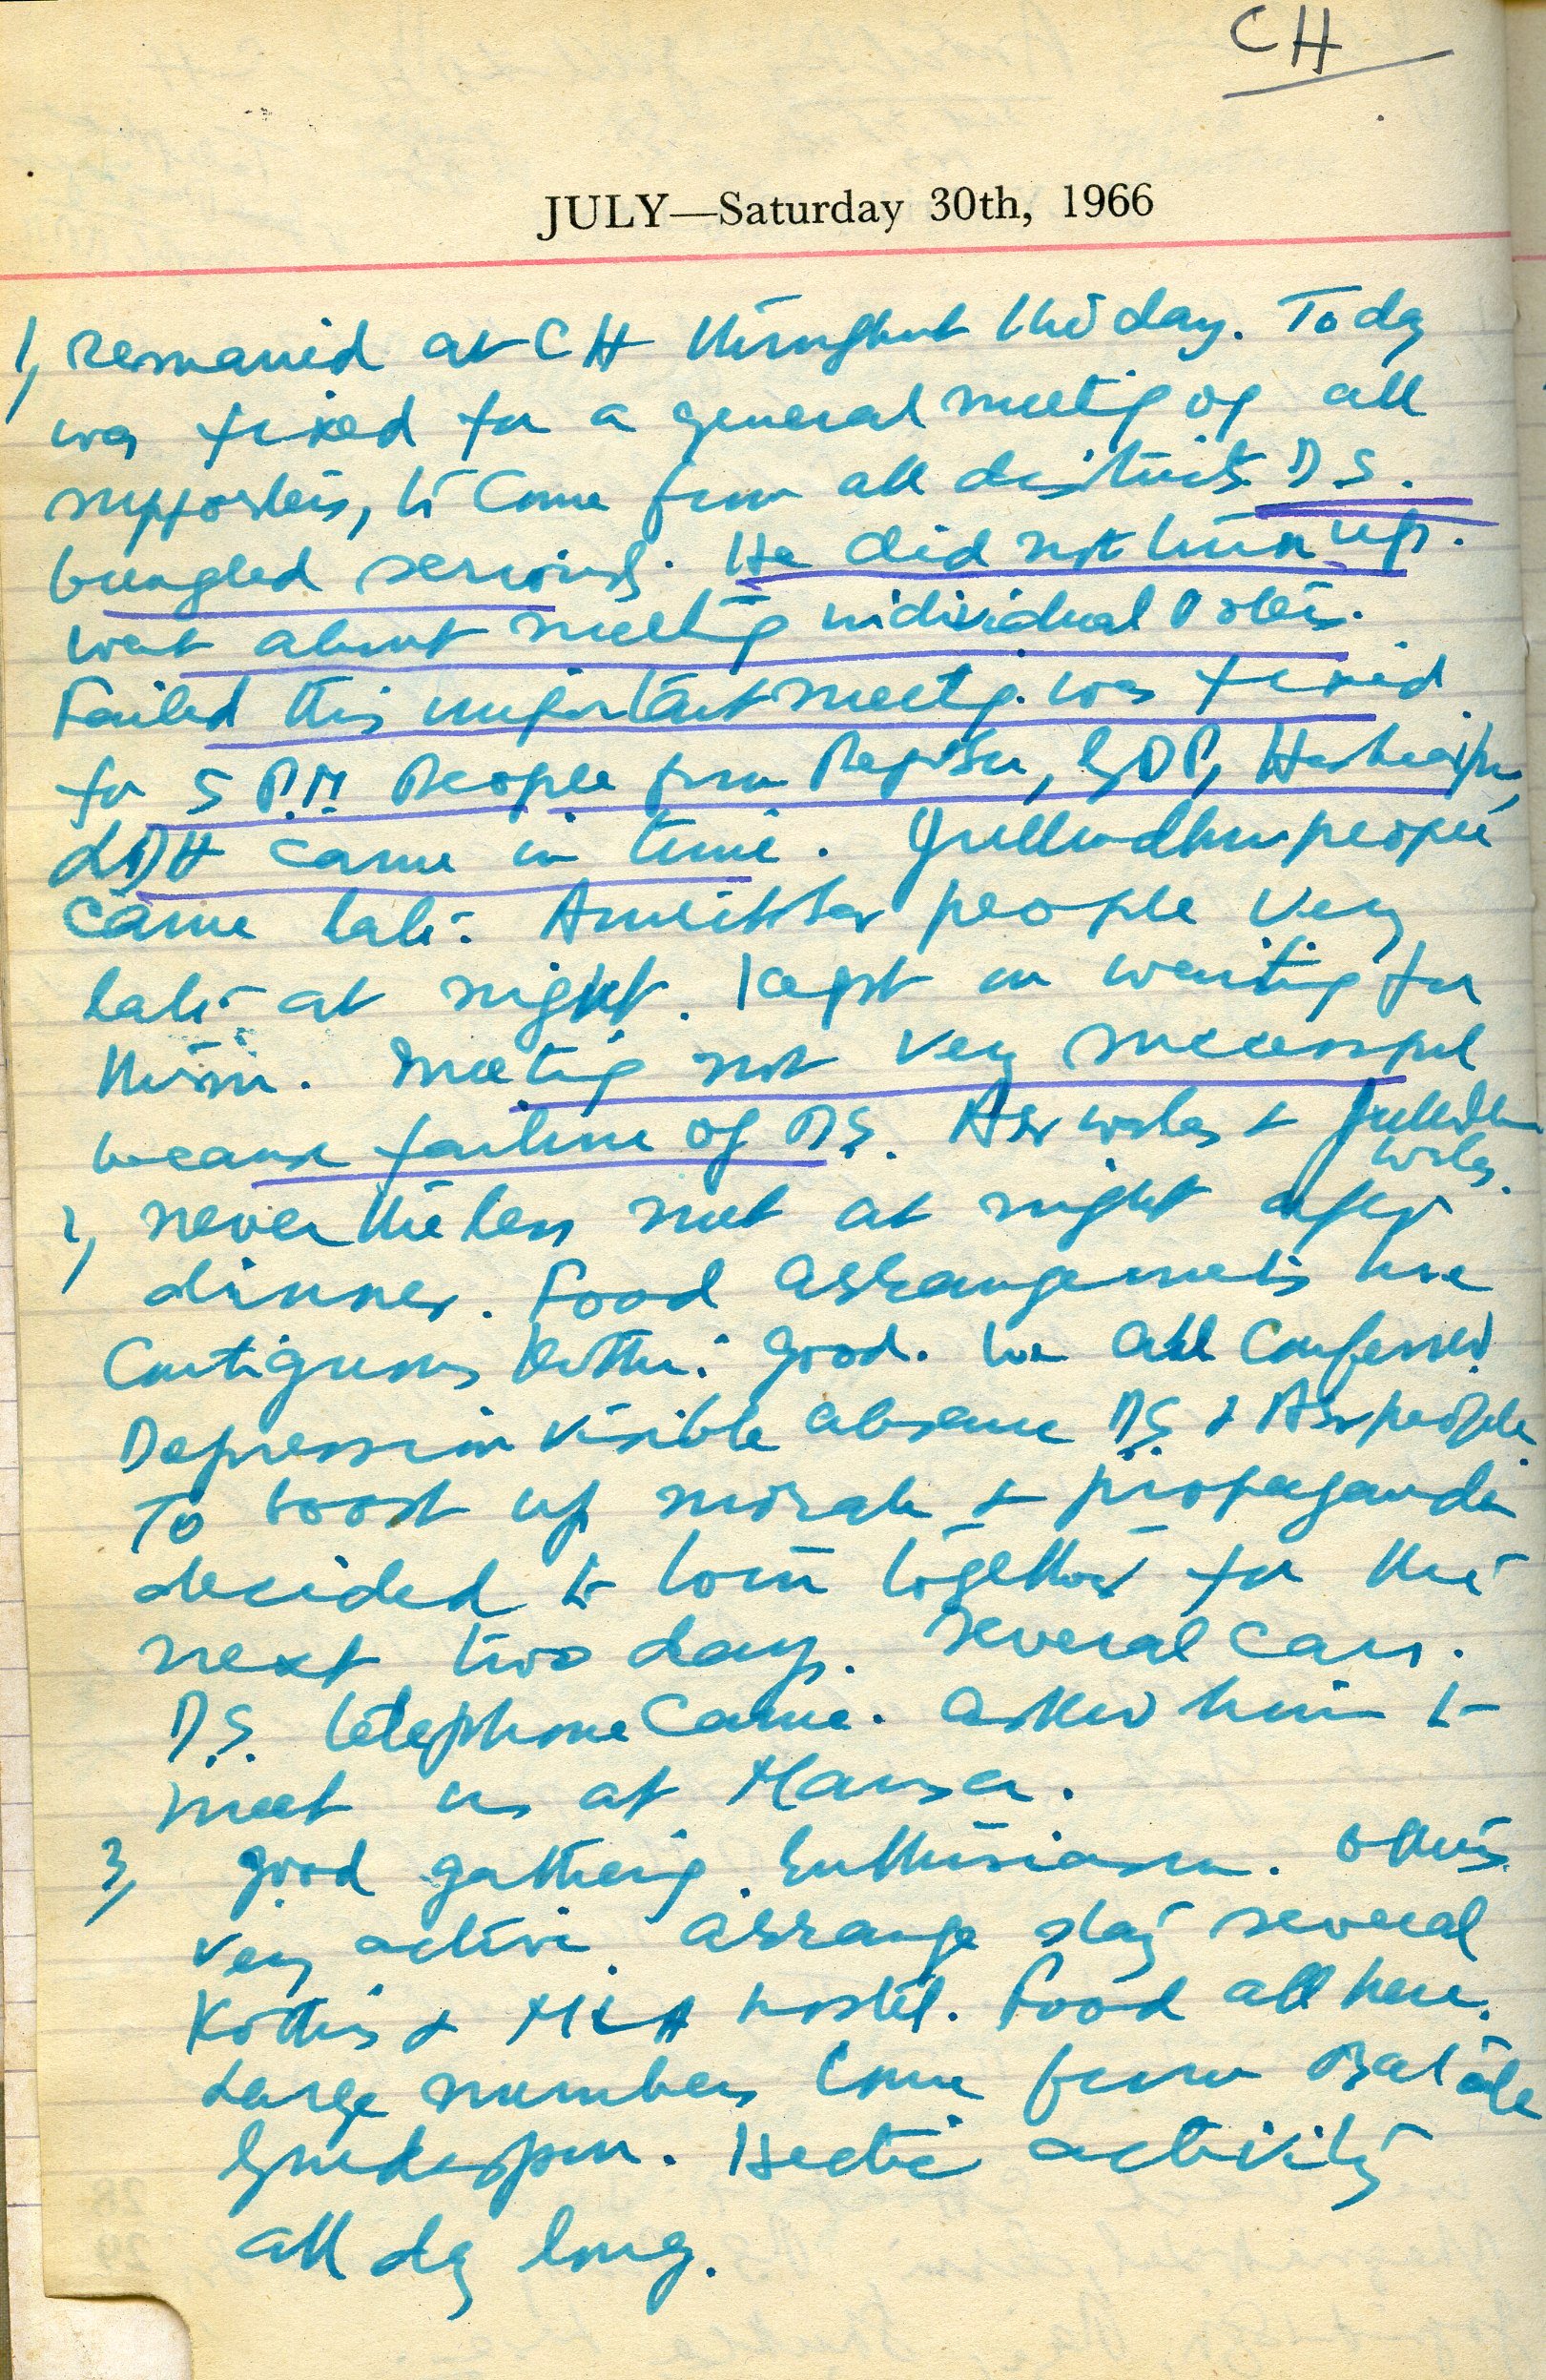 CH
JULY—Saturday 30th, 1966
1, Remained at CH throughout the day. Today
was fixed for a general meeting of all
supporters, to come from all districts. D.S.
bungled seriously. He did not turn up.
went about meeting individual voters.
Failed this important meetg. was fixed
for 5 P.M. People from GDP, Hoshiarpur,
LDH came in time. Jullundhur people
came late. Amritsar people very
late at night. Kept on waiting for
them. Meeting not very successful
because failure of D.S. Asr &  Jullundhur
2, nevertheless met at night after
dinner. Food arrangements here
Contiguous Kothi. Good. We all confessed
Depression visible absence D.S. & Asr people.
To boost up morale & propaganda
decided to tour together for the
next two days. Several cars.
D.S. telephone came. asked him to
meet us at Mansa.
3, Good gathering. Enthusiasm. Others
very active. arrange stay several
Kothis & MLA hostel. Food all here.
Large numbers come from Batala
Gurdaspur. Hectic activity
all day long.